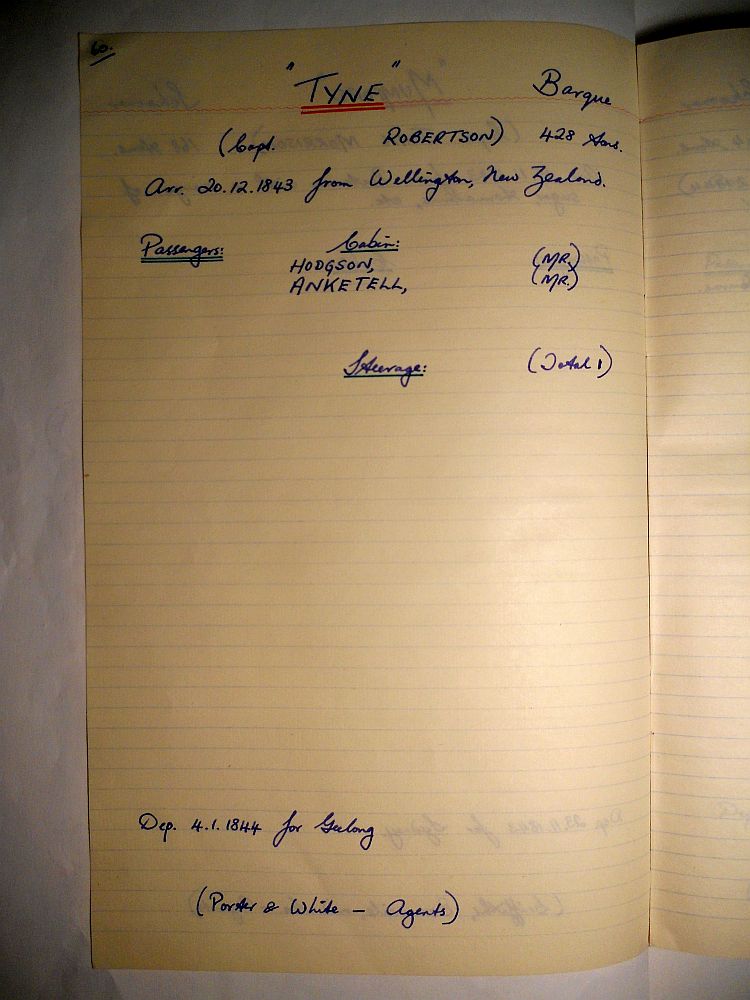 60.
"TYNE" Barque
(Capt. ROBERTSON) 428 tons.
Arr. 20.12.1843 from Wellington, New Zealand.
Passengers: Cabin:
HODGSON, (MR.)
ANKETELL, (MR.)
Steerage: (Total 1)
Dep. 4.1.1844 for Geelong
(Porter & White - Agents)